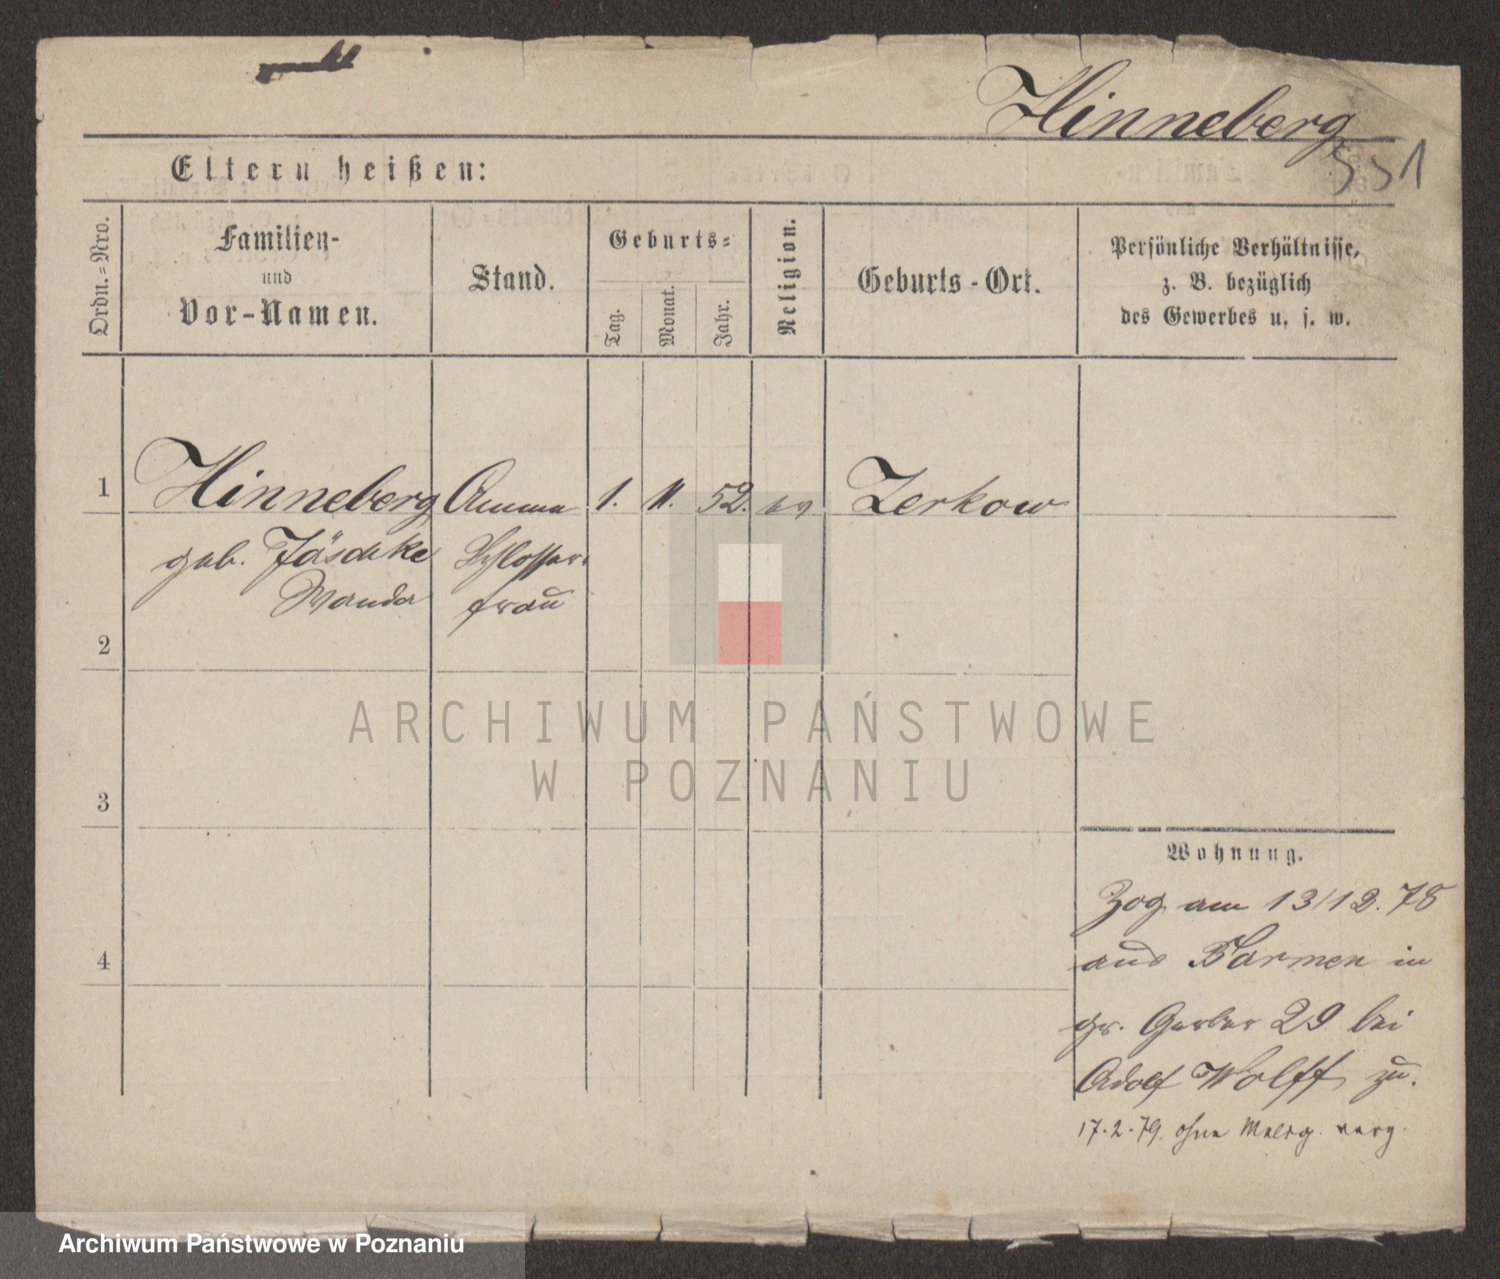 Hinneberg
551
Eltern heißen:
Ordn.-Nro.
Familien-
und
Vor-Namen.
Stand.
Geburts-
Tag.
Monat.
Jahr.
Religion.
Geburts-Ort.
Persönliche Verhältnisse,
z. B. bezüglich
des Gewerbes u. s. w.
1 Hinneberg Amme 1. 11. 52. ev Zerkow
geb. Jäschke Schlosser-
Wanda frau
2
3
4
Wohnung.
Zog am 13/12. 78
aus Barmen in
gr. Gerber 29 bei
Adolf Wolff zu.
17.2.79. ohne Meldg. verz.
ARCHIWUM PAŃSTWOWE
W POZNANIU
Archiwum Państwowe w Poznaniu